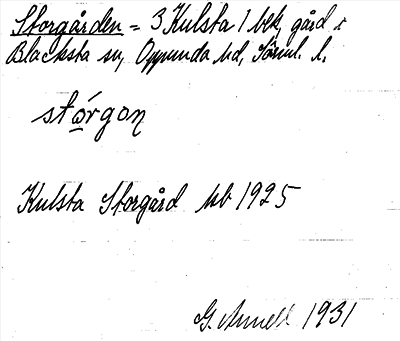 Storgården = 3 Kulsta 1 btk, gård i
Blacksta sn, Oppunda hd, Sörml. l.
stórgan
Kulsta Storgård Jrb 1925
G. 1931